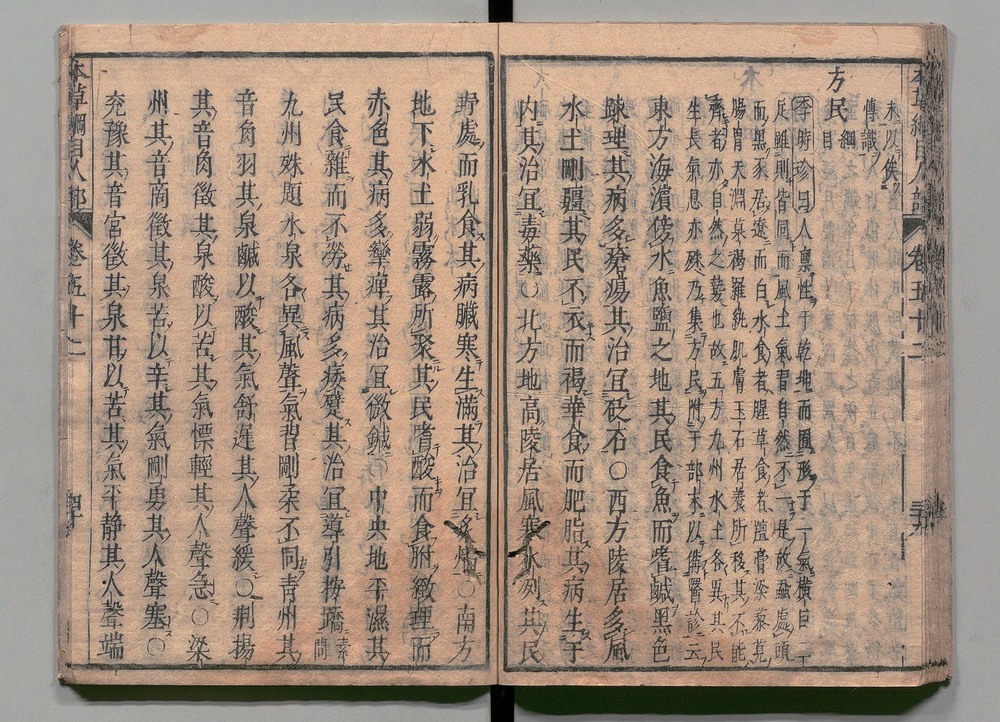 未以俟
傳識
方民 綱目
李時珍曰人禀性于乾坤而囿形于一氣橫目二
足雖則皆同而風土氣習自然不一是故蝨處頭
而黑豕居遼而白水食者腥草食者羶膏粱藜莧
腸胃天淵菓褐羅紈肌膚玉石居養所移其不能
齊者亦自然之勢也故五方九州水土各異其民
生長氣息亦殊乃集方民附于部末以備醫診云
東方海濱傍水魚鹽之地其民食魚而嗜鹹黑色
踈理其病多瘡瘍其治宜砭石〇西方陵居多風
水土剛疆其民不衣而褐華食而肥脂其病生于
内其治宜毒藥〇北方地高陵居風寒氷冽其民
野處而乳食其病臟寒生滿其治宜灸焫〇南方
地下水土弱霧露所聚其民嗜酸而食胕緻理而
赤色其病多攣痺其治宜微鍼〇中央地平濕其
民食雜而不勞其病多痿躄其治宜導引按蹻素問
九州殊題水泉各異風聲氣習剛柔不同青州其
音角羽其泉鹹以酸其氣舒遲其人聲緩〇荆揚
其音角徵其泉酸以苦其氣慓輕其人聲急〇梁
州其音商徵其泉苦以辛其氣剛勇其人聲塞〇
兖豫其音宮徵其泉甘以苦其氣平静其人聲端
本草綱目人部 卷五十二